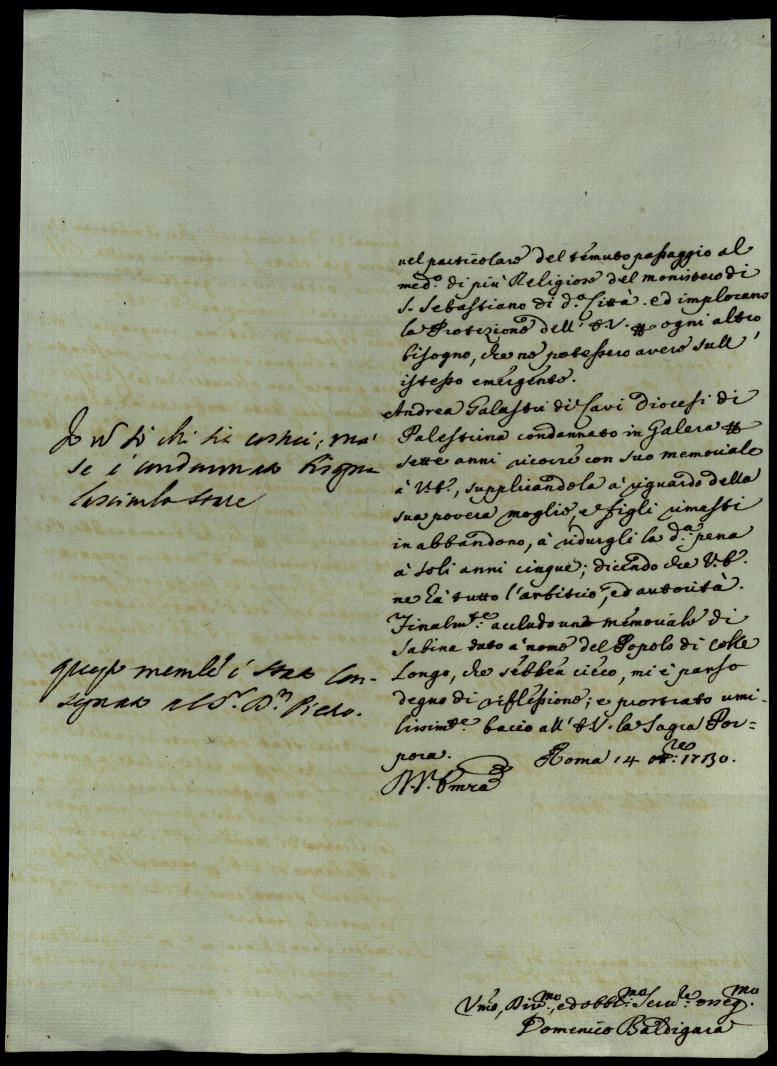 nel particolare del temuto passaggio al
med.º di più Religiose del monistero di
S. Sebastiano di d.ª Città. ed implorano
la Protezione dell' E.V. ogni altro
bisogno, che ne potessero avere sull'
istesso emergente.
Andrea Galassi di Cavi Diocesi di
Palestrina condannato in Galera
sette anni ricorre con suo memoriale
à V.E., supplicandola à riguardo della
sua povera moglie, e figli rimasti
in abbandono, à ridurgli la d.ª pena
à soli anni cinque; dicendo che V.E.
ne hà tutto l'arbitrio, ed autorità.
Finalm.te accludo un memoriale di
Sabina dato à nome del Popolo di Colle
Longo, che sebben cieco, mi è parso
degno di riflessione; e prostrato umi-
lissim.te bacio all' E.V. la Sagra Por=
pora. Roma 14 1730.
Io nõ sò chi sia costui; mà
se è condannato bisogna
lasciarlo stare
questo memle è stato Con-
segnato al Sr. Dn Pietro.
V.V. Emza
Umo, Div.mo, ed obbl.mo Serv.re osseq.mo
Domenico Baldigara